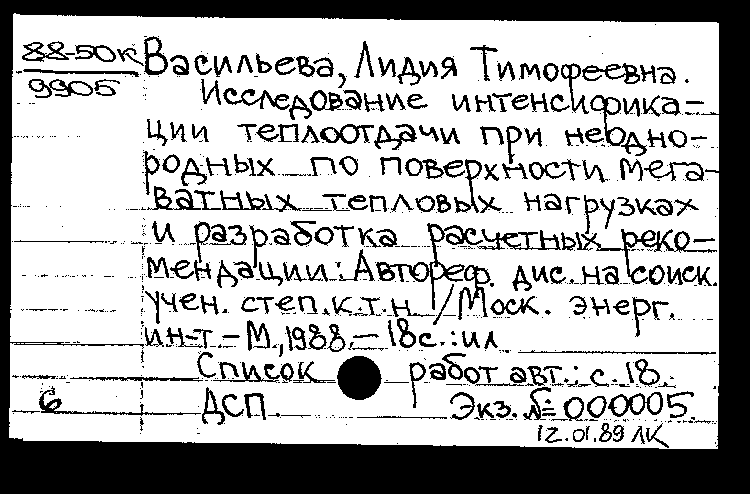 88-50К
9905
Васильева, Лидия Тимофеевна.
Исследование интенсифика-
ции теплоотдачи при неодно-
родных по поверхности мега-
ватных тепловых нагрузках
и разработка расчетных реко-
мендаций: Автореф. дис. на соиск.
учен. степ. к.т.н. / Моск. энерг.
ин-т. – М., 1988. – 18с.: ил
Список работ авт.: с. 18.
6 ДСП. Экз. № 000005.
12.01.89 ЛК